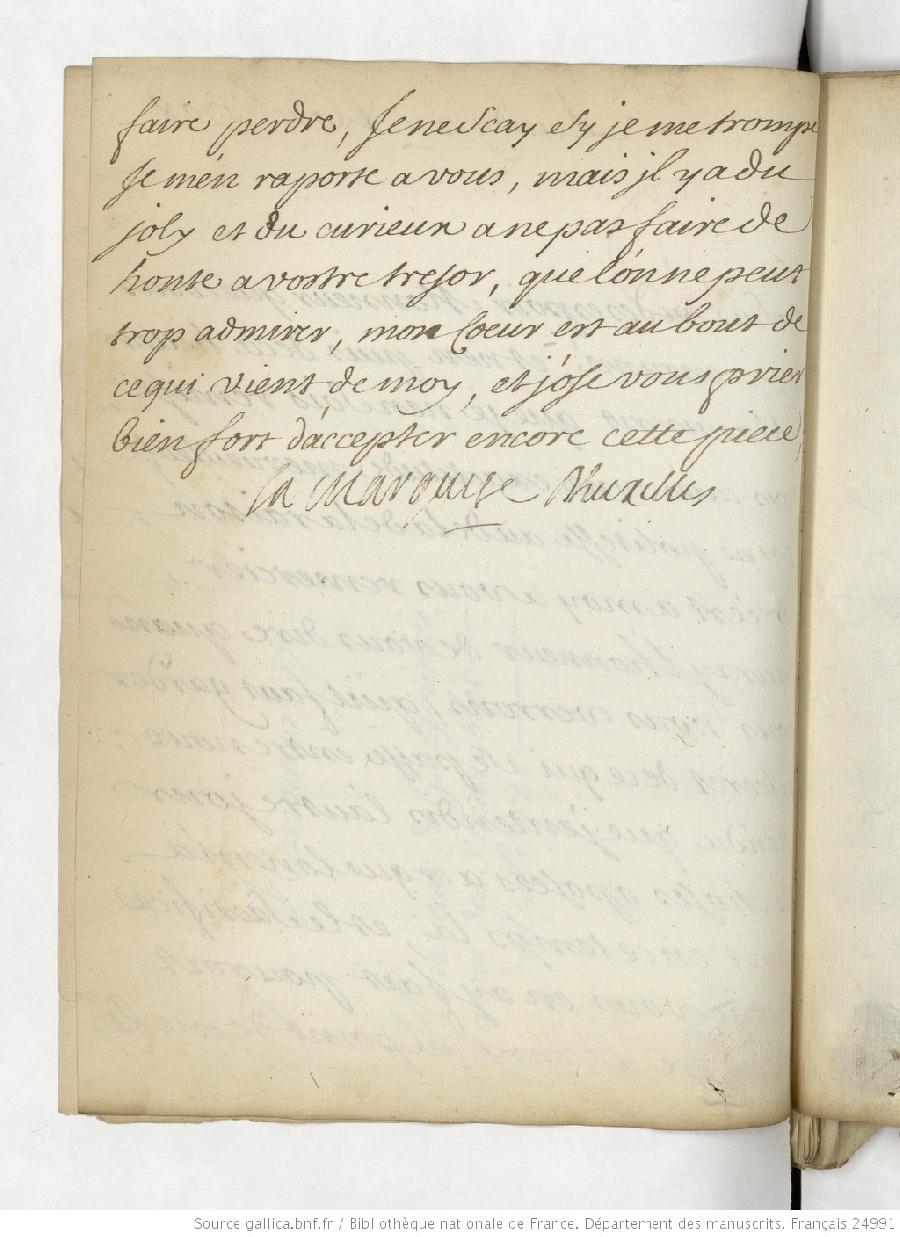 faire perdre, Je ne scay sy je me trompe
Je m'en raporte a vous, mais jl y a du
joly et du curieux a ne pas faire de
honte a vostre tresor, que l'on ne peut
trop admirer, mon Coeur est au bout de
ce qui vient de moy, et j'ose vous prier
bien fort d'accepter encore cette piece,
la Marquise Dhuxelles
Source gallica.bnf.fr / Bibliothèque nationale de France. Département des manuscrits. Français 24991